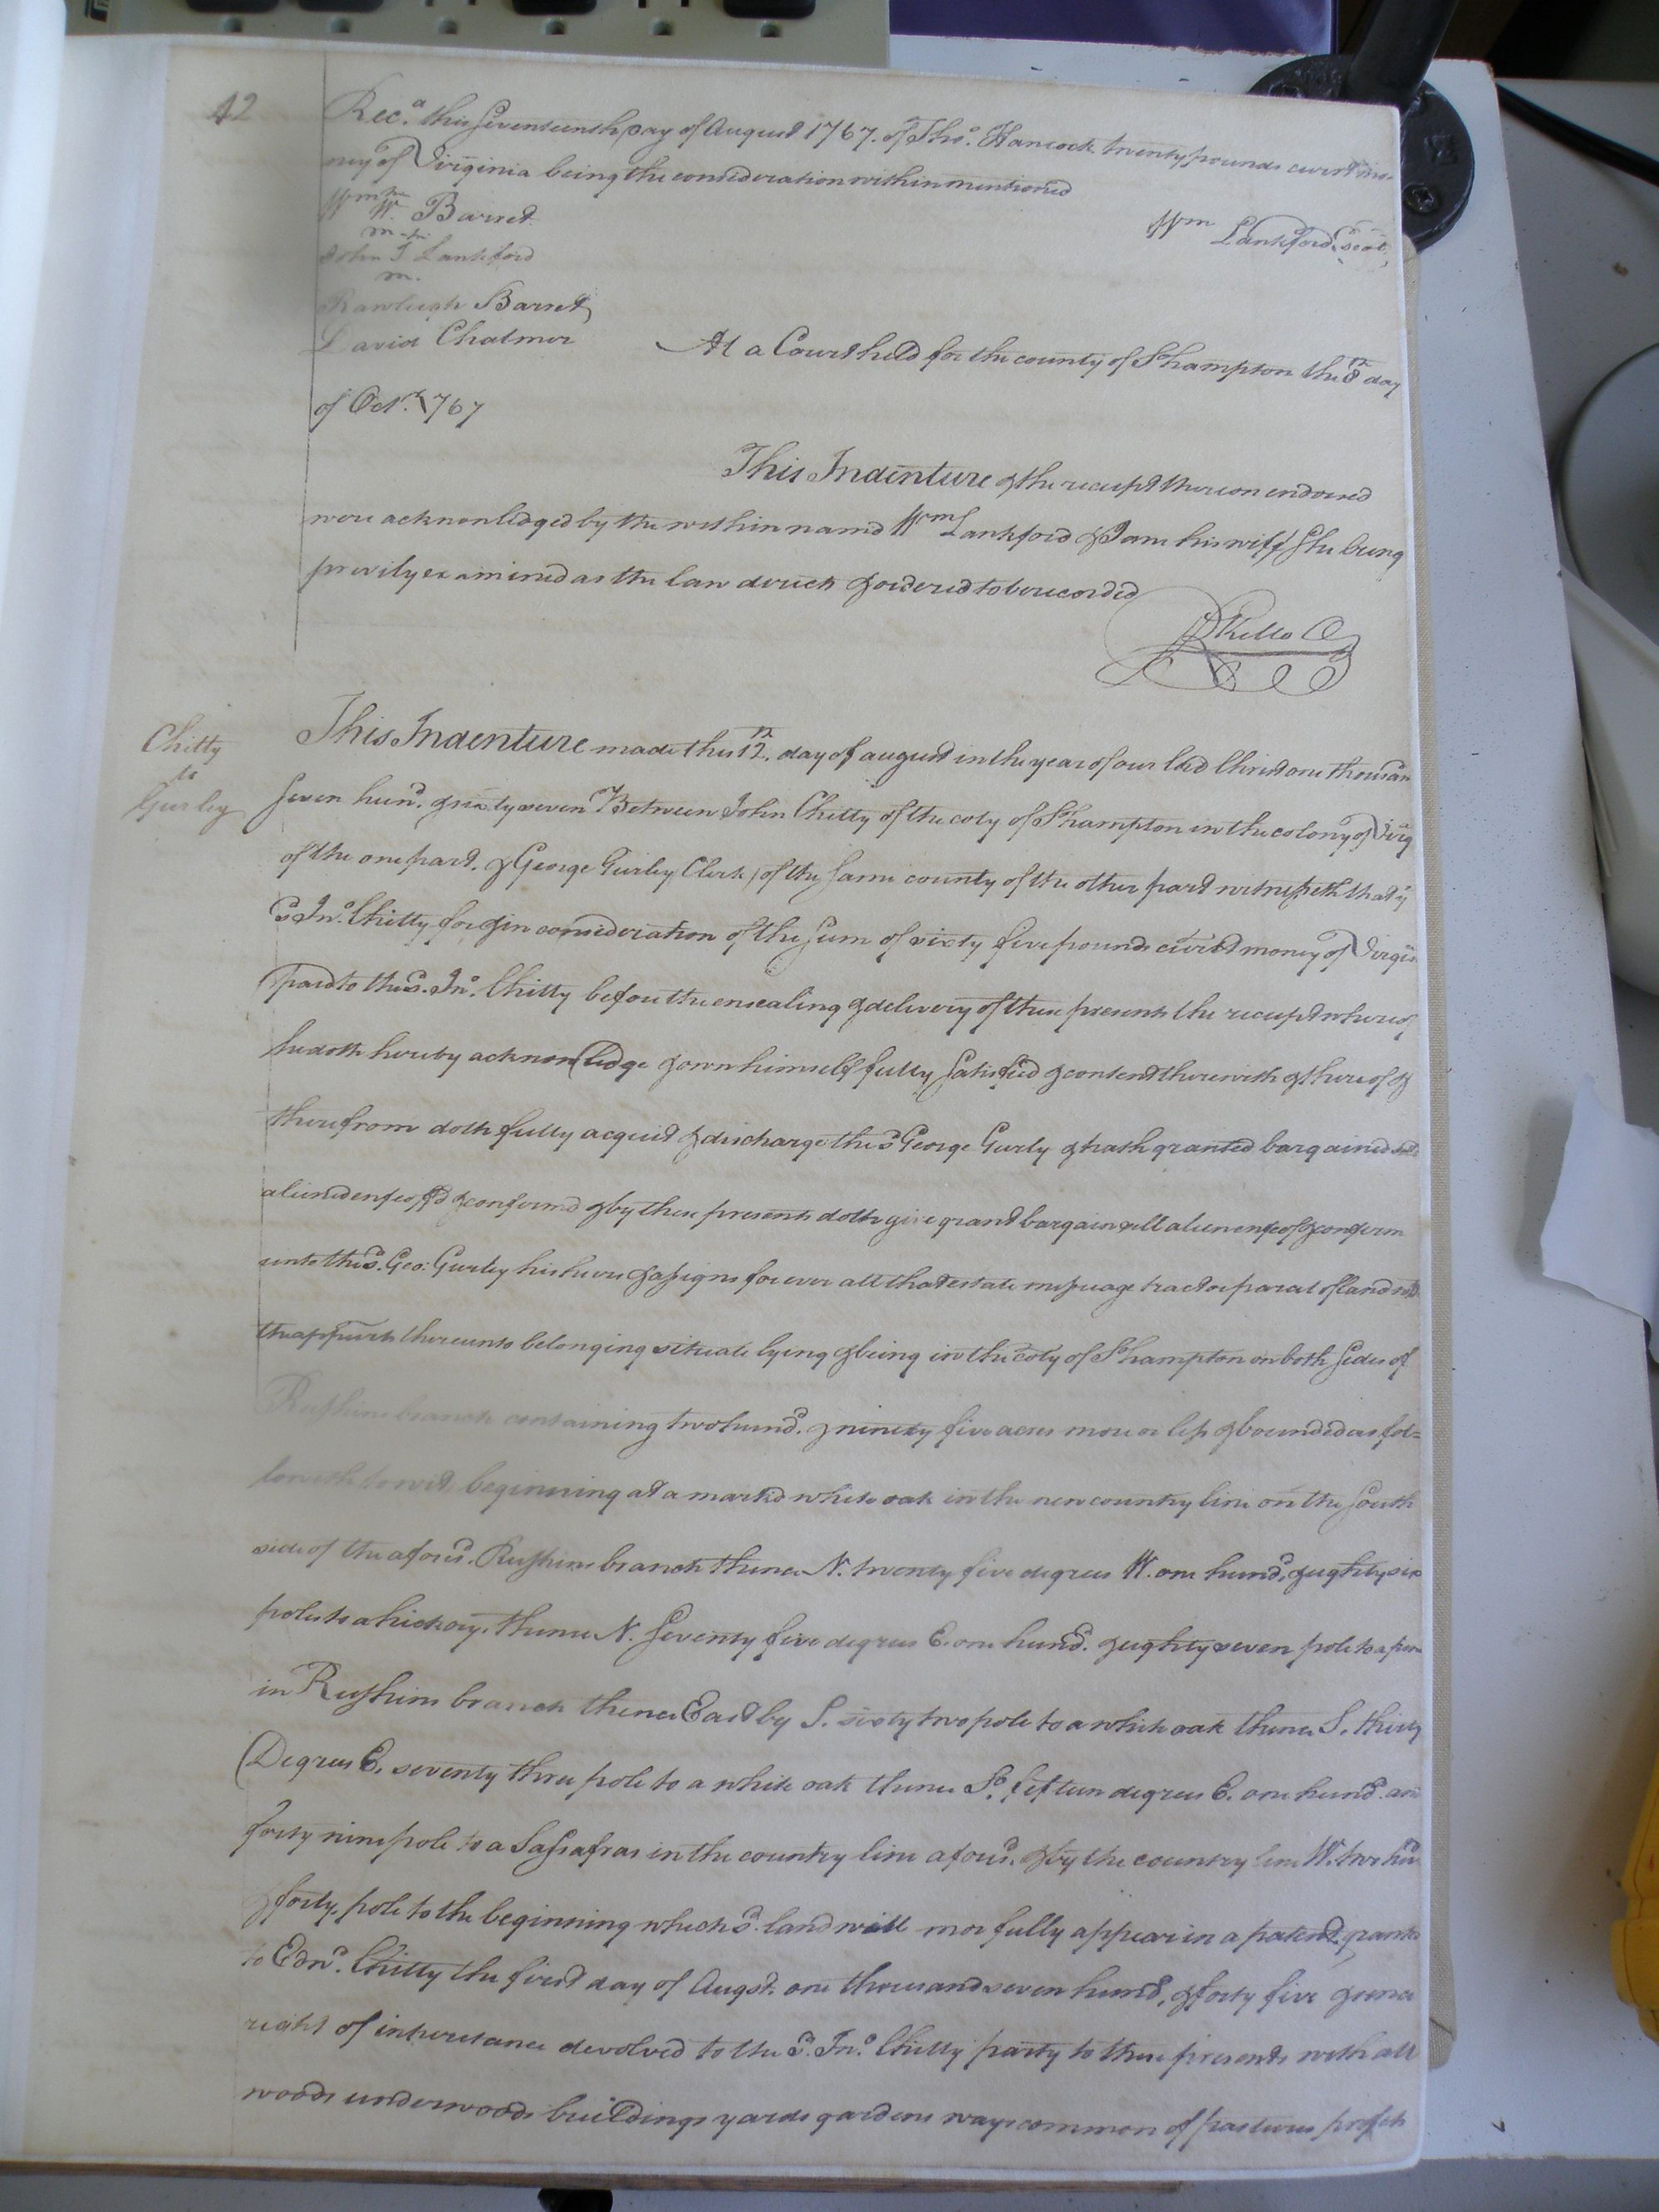 42
Recd. this Seventeenth day of August 1767. of Tho. Hancock twenty pounds currt mo-
ney of Virginia being the consideration within mentioned
Wm W. Barret
Wm Lankford Seal
John I Lankford
Rawleigh Barret
David Chalmer
At a Court held for the county of S'hampton the 8th day
of Octr. 1767
This Indenture & the receipt thereon endorsed
were acknowledged by the within named Wm Lankford & Jane his wife She being
privily examined as the law directs & ordered to be recorded
R Kello C
Chitty
to
Gurley
This Indenture made this 12th. day of august in the year of our lord Christ one thousan
Seven hund. & sixty seven Between John Chitty of the coty of S'hampton in the colony of Virg
of the one part. & George Gurley Clerk of the Same county of the other part witnesseth that ye
sd Jno. Chitty for & in consideration of the Sum of sixty five pounds currt money of Virgi
paid to the sd. Jno. Chitty before the ensealing & delivery of these presents the receipt whereof
he doth hereby acknowledge & own himself fully Satisfied & content therewith & thereof &
therefrom doth fully acquit & discharge the sd George Gurly & hath granted bargained sold
aliened enfeoff'd & confirmd & by these presents doth give grant bargain sell alien enfeof & confirm
unto the sd. Geo: Gurley his heirs & assigns forever all that estate messuage tract or parcel of land
the appurts thereunto belonging situate lying & being in the coty of S'hampton on both Sides of
branch containing two hund. & ninety five acres more or less & bounded as fol=
loweth to wit beginning at a markd white oak in the new country line on the South
side of the aforesd. branch thence N. twenty five degrees W. one hund. & eighty six
pole to a hickory. thence N. Seventy five degrees E. one hund. & eighty seven pole to a
in branch thence East by S. sixty two pole to a white oak thence S. thirty
Degrees E. seventy three pole to a white oak thence So. fifteen degrees E. one hund. and
forty nine pole to a Sassafras in the country line aforesd. & by the country line W. two hun
& forty pole to the beginning which sd. land will more fully appear in a patent grante
to Edwd. Chitty the first day of Augst. one thousand seven hund. & forty five & since
right of inheritance devolved to the sd. Jno. Chitty party to these presents with all
woods underwoods buildings yards gardens ways common of pastures profits